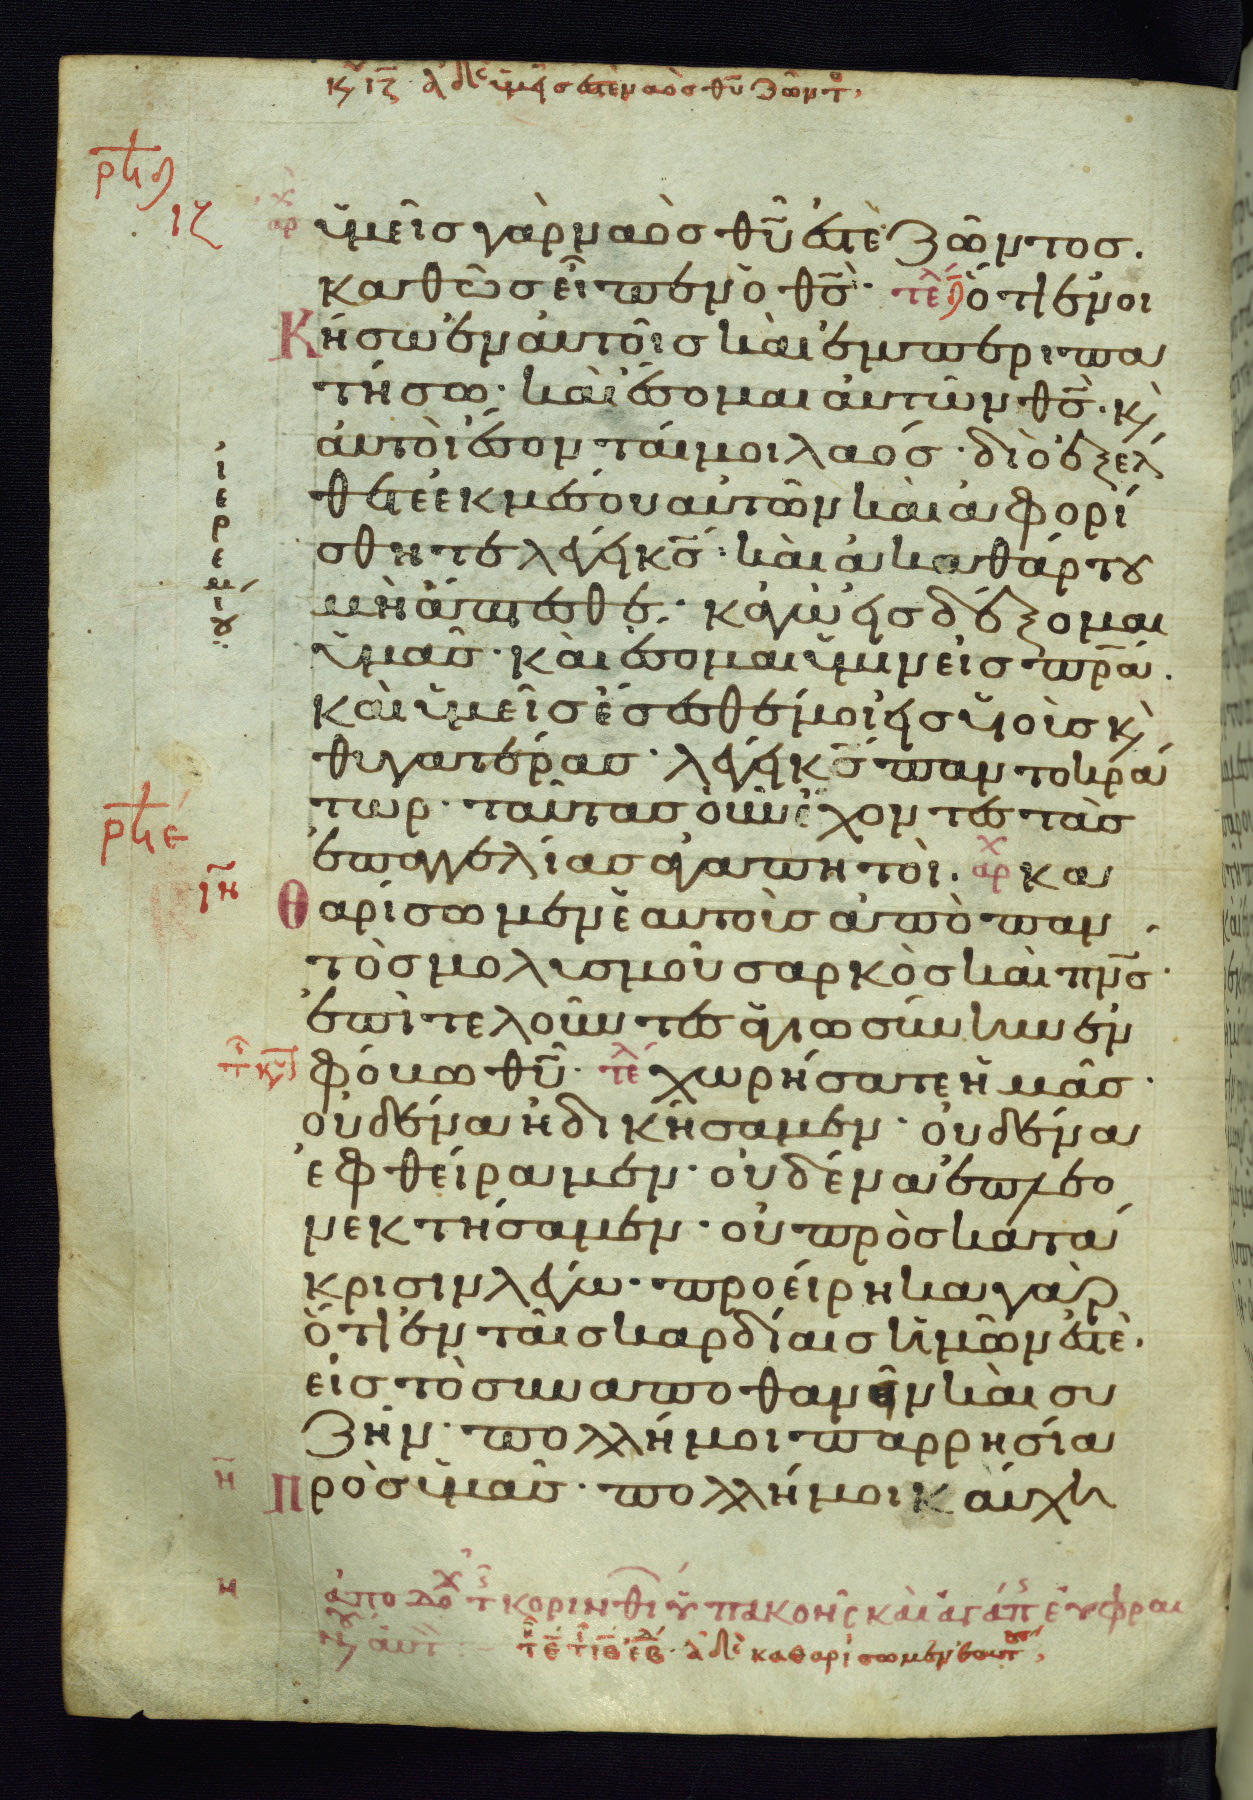 κυ ιζ αδελφοι ὑμεῖς ἐστὲ ναὸς θυ ζῶντος
ιζ
ὑμεῖς γὰρ ναὸς θῦ ἐστὲ ζῶντος.
καθὼς εἶπεν ὁ θς· τε ὅτι ἐνοι
Κήσω ἐν αὐτοῖς καὶ ἐνπεριπα
τήσω· καὶ ἔσομαι αὐτῶν θς· κ
αὐτοὶ ἔσονταί μοι λαός· διὸ ἐξελ
θετε ἐκ μέσου αὐτῶν καὶ ἀφορί
σθητε λέγει κς· καὶ ἀκαθάρτου
μὴ ἅπτεσθε· κἀγὼ εἰσδέξομαι
ὑμᾶς· καὶ ἔσομαι ὑμῖν εἰς πρα.
καὶ ὑμεῖς ἔσεσθέ μοι εἰς υἱοὺς κ
θυγατέρας· λέγει κς παντοκρά
τωρ· ταύτας οὖν ἔχοντες τὰς
ἐπαγγελίας ἀγαπητοὶ. αρχ κα
Θαρίσωμεν ἑαυτοὺς ἀπὸ παν
τὸς μολυσμοῦ σαρκὸς καὶ πνς·
ἐπιτελοῦντες ἁγιωσύνην ἐν
φόβω θῦ· τελ χωρήσατε ἡμᾶς·
οὐδένα ἠδικήσαμεν· οὐδένα
ἐφθείραμεν· οὐδένα ἐπλεο
νεκτήσαμεν· οὐ πρὸς κατά
κρισιν λέγω· προείρηκα γὰρ
ὅτι ἐν ταῖς καρδίαις ἡμῶν ἐστὲ·
εἰς τὸ συναποθανεῖν καὶ συ
ζῆν· πολλή μοι παρρησία
Πρὸς ὑμᾶς· πολλή μοι καύχη
ιερεμιου
ιη
η
η
ἀποδοχ τ κορινθι ὑπακοῆς καὶ ἀγάπ εὐφραι
αδελ καθαρίσωμεν ἑαυτους